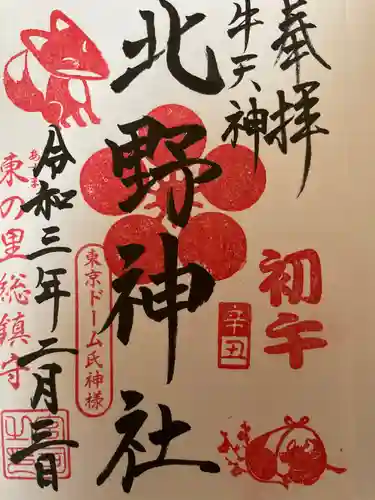 奉拝
牛天神
北野神社
初午
辛丑
東京ドーム氏神様
令和三年二月三日
東の里総鎮守
あずま